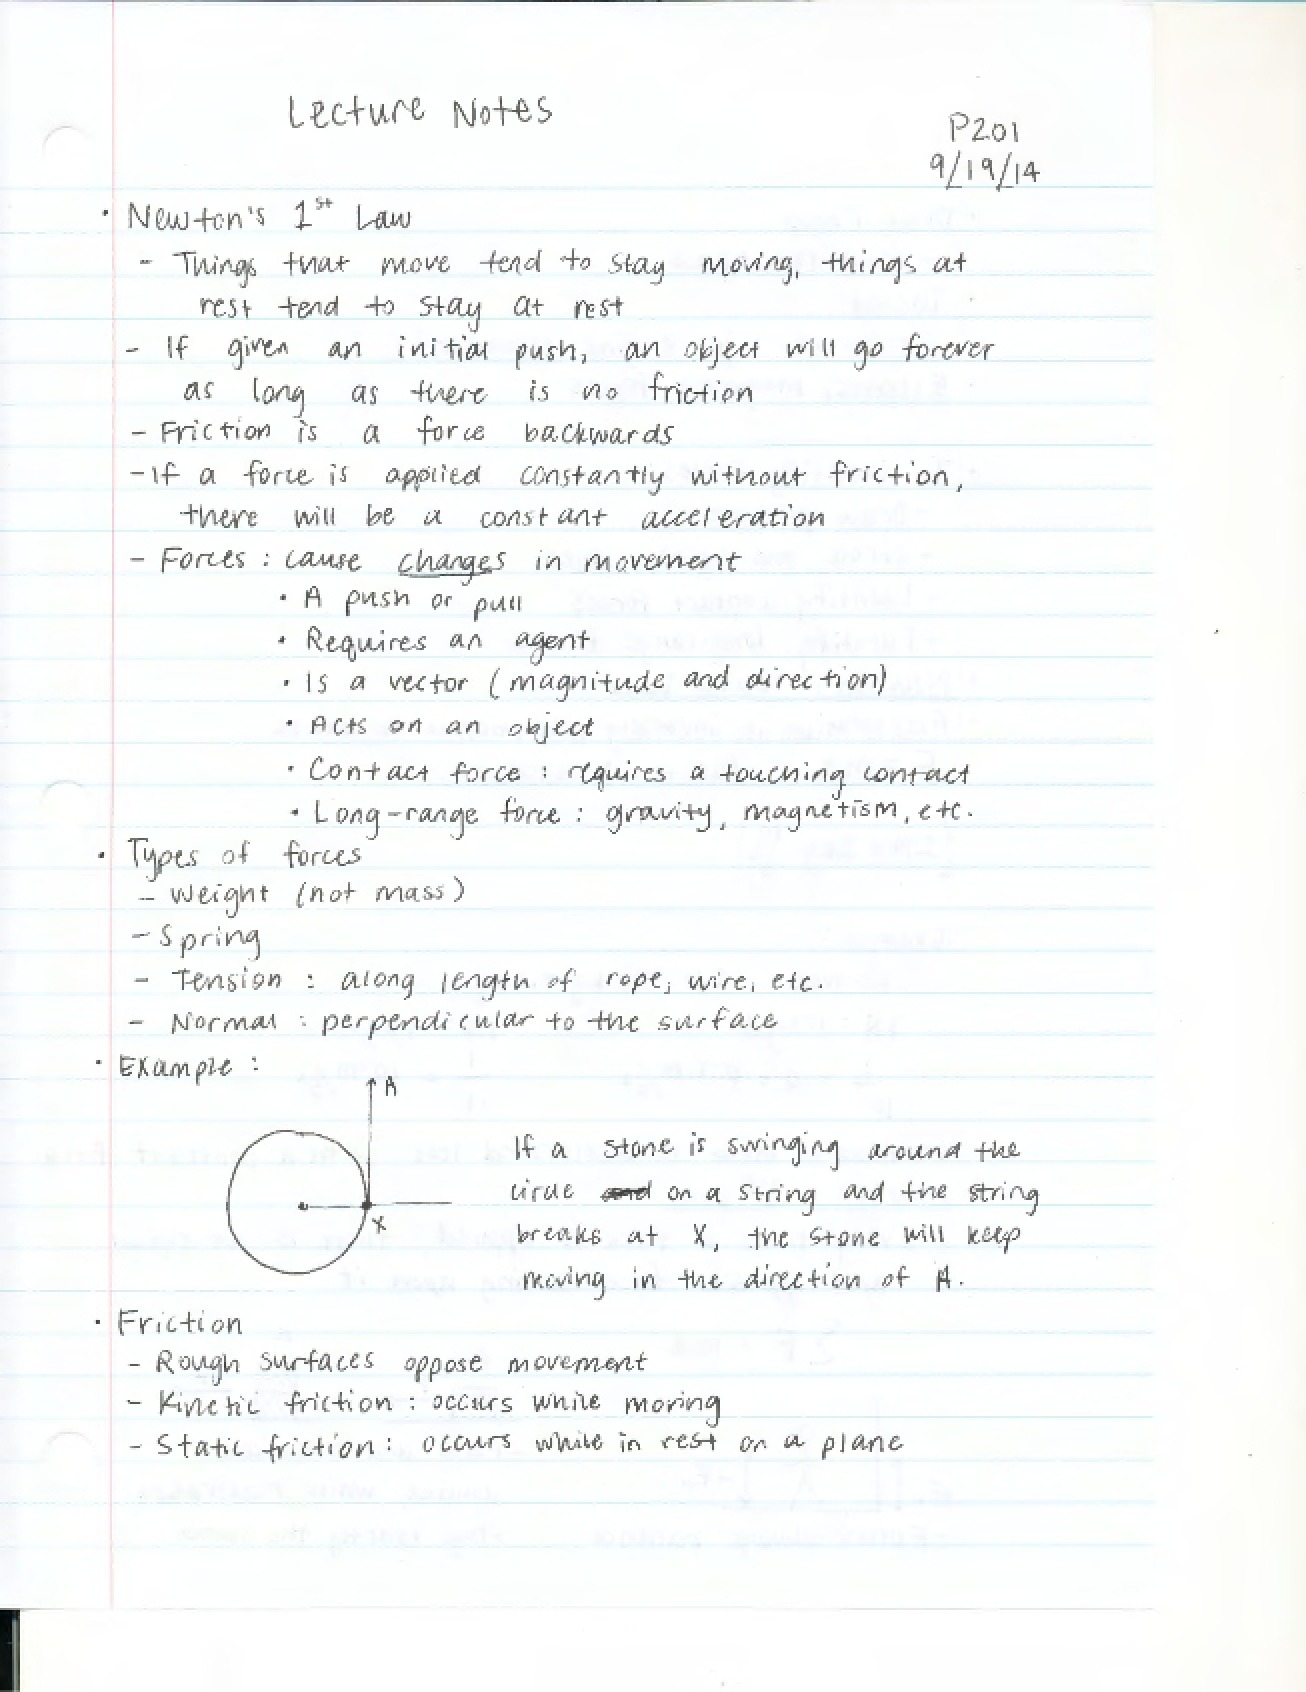 Lecture Notes
P201
9/19/14
• Newton's 1st Law
- Things that move tend to stay moving, things at
rest tend to stay at rest
- If given an initial push, an object will go forever
as long as there is no friction
- Friction is a force backwards
- If a force is applied constantly without friction,
there will be a constant acceleration
- Forces : cause changes in movement
• A push or pull
• Requires an agent
• Is a vector (magnitude and direction)
• Acts on an object
• Contact force : requires a touching contact
• Long-range force : gravity, magnetism, etc.
• Types of forces
- Weight (not mass)
- Spring
- Tension : along length of rope, wire, etc.
- Normal : perpendicular to the surface
• Example :
A
X
If a stone is swinging around the
circle and on a string and the string
breaks at X, the stone will keep
moving in the direction of A.
• Friction
- Rough surfaces oppose movement
- Kinetic friction : occurs while moving
- Static friction : occurs while in rest on a plane